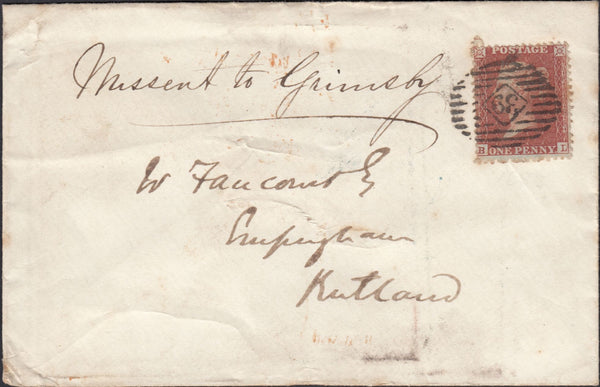 POSTAGE
Missent to Grimsby
39
B ONE PENNY L
W Faucomb Esq
Empingham
Rutland